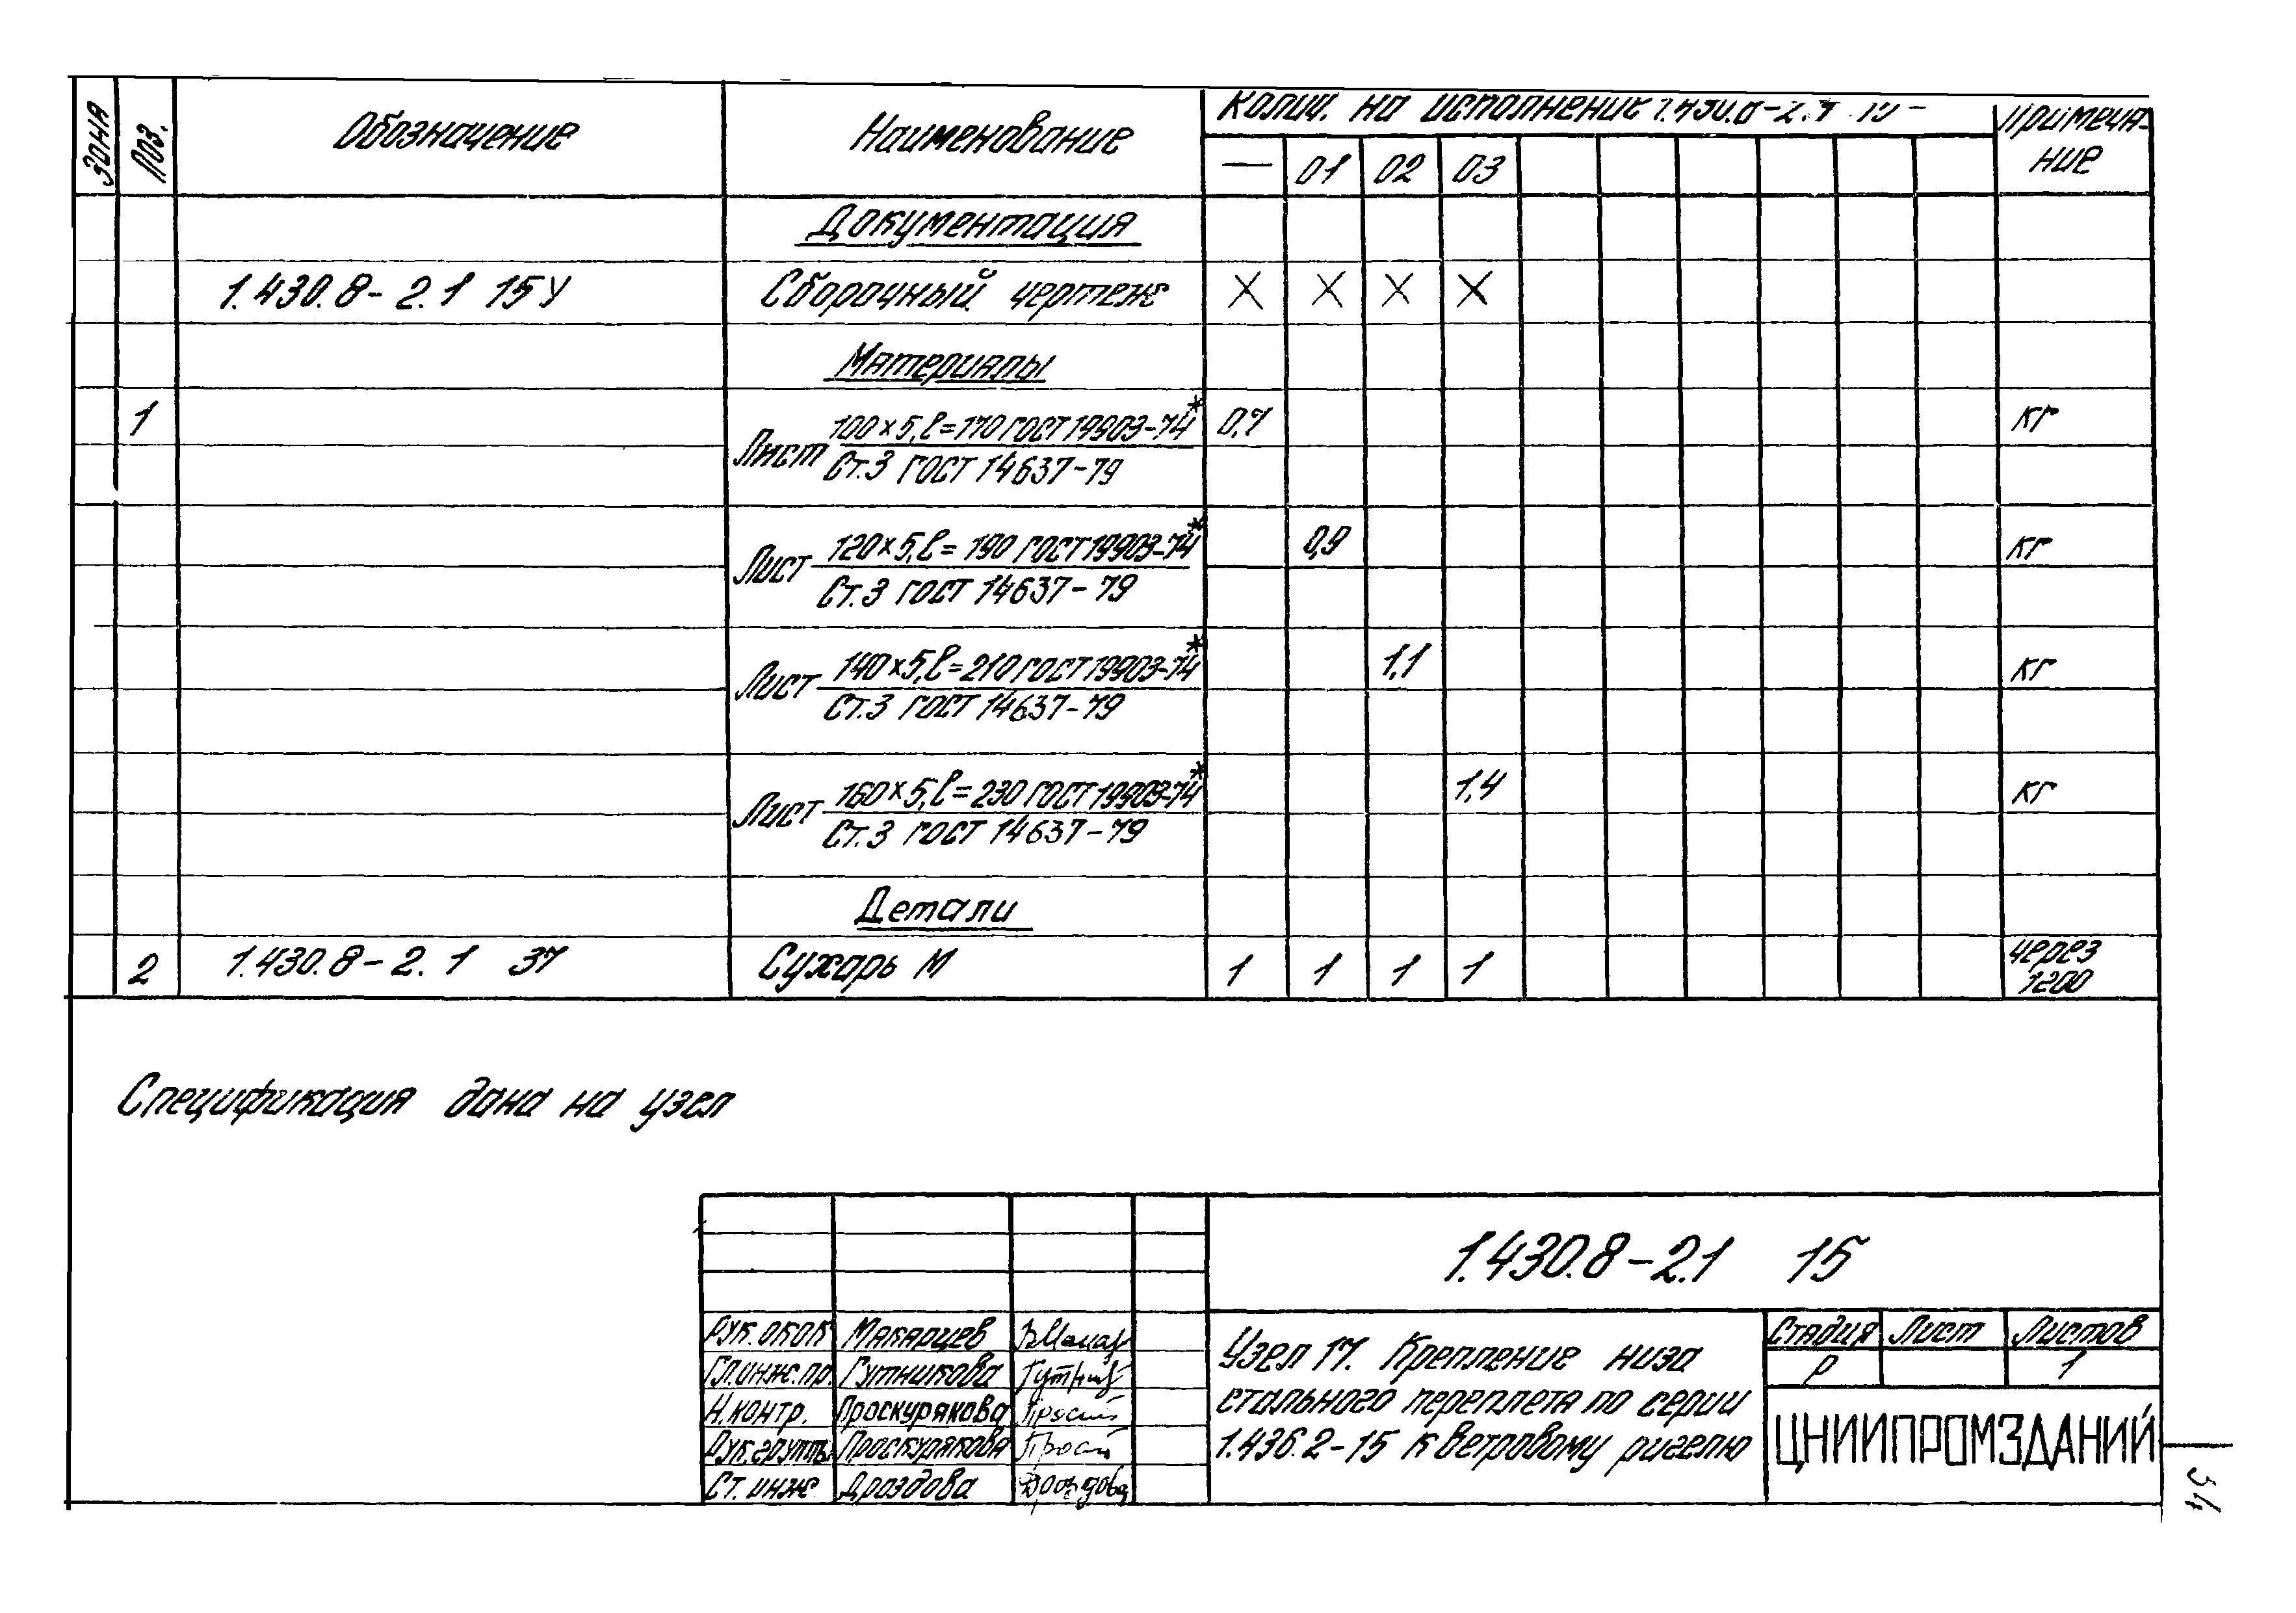 Зона Поз. Обозначение Наименование Колич. на исполнение 1.430.8-2.1 15 - Примеча-
ние
— 01 02 03
Документация
1.430.8-2.1 15У Сборочный чертеж X X X X
Материалы
1 Лист 100×5, ℓ=170 ГОСТ 19903-74* 0,7 кг
Ст.3 ГОСТ 14637-79
Лист 120×5, ℓ=190 ГОСТ 19903-74* 0,9 кг
Ст.3 ГОСТ 14637-79
Лист 140×5, ℓ=210 ГОСТ 19903-74* 1,1 кг
Ст.3 ГОСТ 14637-79
Лист 160×5, ℓ=230 ГОСТ 19903-74* 1,4 кг
Ст.3 ГОСТ 14637-79
Детали
2 1.430.8-2.1 37 Сухарь М 1 1 1 1 через
1200
Спецификация дана на узел
1.430.8-2.1 15
Рук. окок Макарцев
Гл.инж.пр. Гутникова
Н.контр. Проскурякова
Рук.группы Проскурякова
Ст. инж. Дроздова
Узел 17. Крепление низа
стального переплета по серии
1.436.2-15 к ветровому ригелю
Стадия Лист Листов
Р 1
ЦНИИПРОМЗДАНИЙ
34